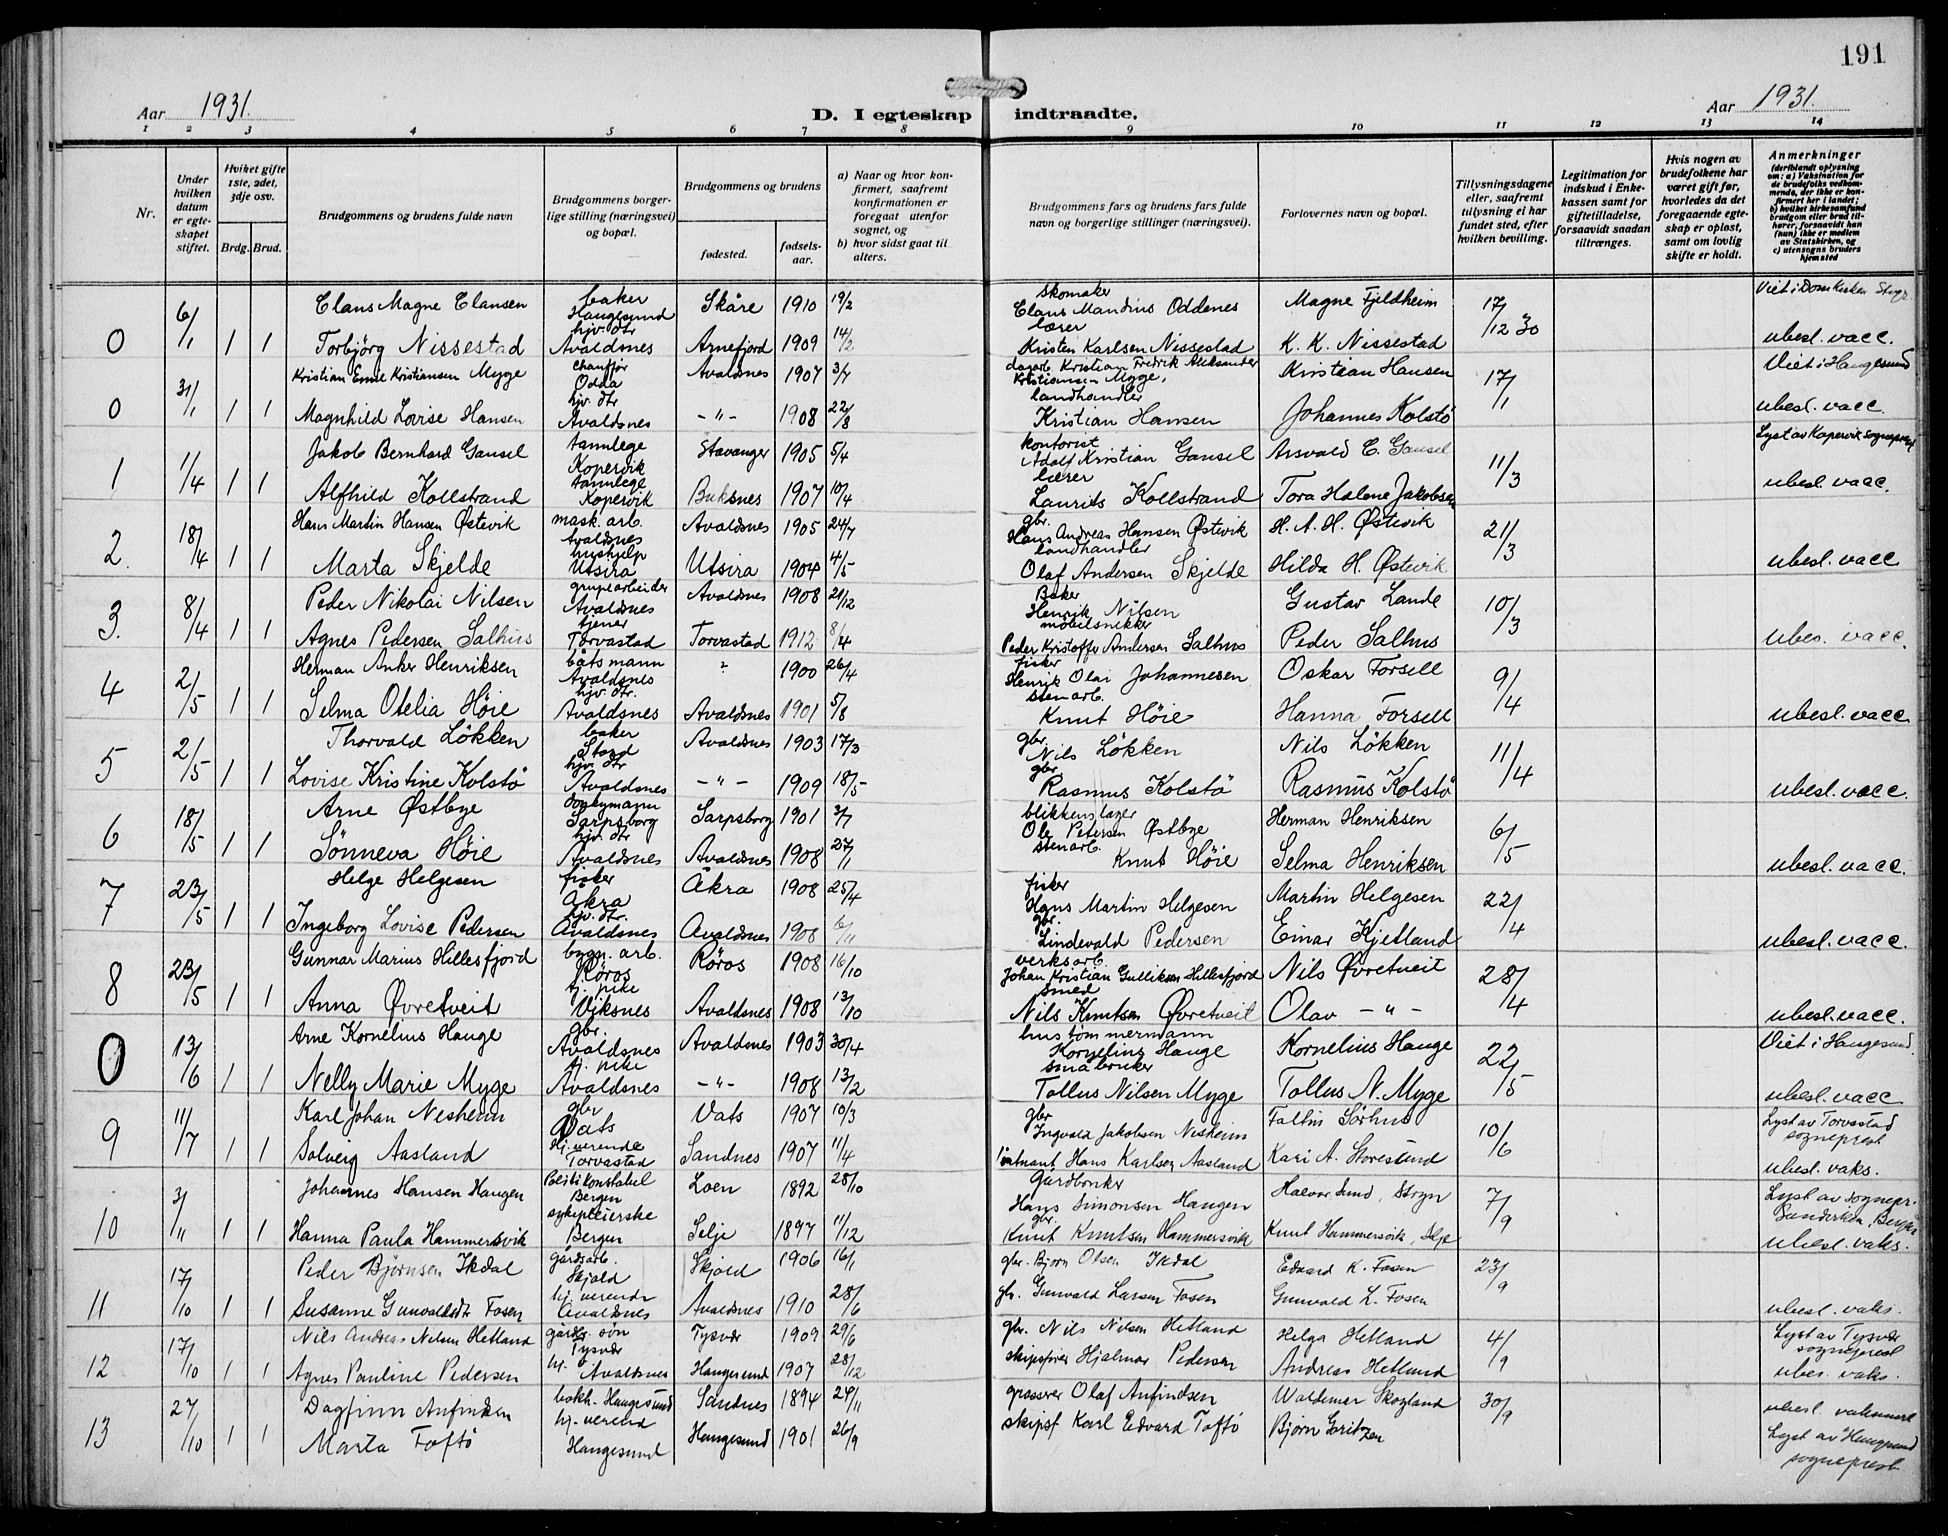 191
Aar 1931.
D. I egteskap indtraadte.
Aar 1931.
1 2 3 4 5 6 7 8 9 10 11 12 13 14
Nr.
Under hvilken datum er egte-skapet stiftet.
Hvilket gifte 1ste, 2det, 3dje osv.
Brdg. Brud.
Brudgommens og brudens fulde navn
Brudgommens borger-lige stilling (næringsvei) og bopæl.
Brudgommens og brudens
fødested.
fødsels-aar.
a) Naar og hvor kon-firmert, saafremt konfirmationen er foregaat utenfor sognet, og
b) hvor sidst gaat til alters.
Brudgommens fars og brudens fars fulde navn og borgerlige stillinger (næringsvei).
Forlovernes navn og bopæl.
Tillysningsdagene eller, saafremt tillysning ei har fundet sted, efter hvilken bevilling.
Legitimation for indskud i Enke-kassen samt for giftetilladelse, forsaavidt saadan tiltrænges.
Hvis nogen av brudefolkene har været gift før, hvorledes da det foregaaende egte-skap er opløst, samt om lovlig skifte er holdt.
Anmerkninger (deriblandt oplysning om: a) Vaksination for de brudefolks vedkom-mende, der ikke er kon-firmert her i landet; b) hvilket kirkesamfund brudgom eller brud til-hører, forsaavidt han (hun) ikke er medlem av Statskirken, og c) utensogns bruders hjemsted
0 6/1 1 1
Claus Magne Clausen baker Haugesund Skåre 1910 19/2 skomaker Claus Mandius Oddenes Magne Fjeldheim 17/12 30 Viet i Domkirken Stvgr.
Torbjörg Nissestad hjv. dtr Avaldsnes Arnefjord 1909 14/2 lærer Kristen Karlsen Nissestad K. K. Nissestad ubesl. vacc.
0 31/1 1 1
Kristian Emil Kristiansen Myge chauffør Odda Avaldsnes 1907 3/7 dagarb. Kristian Fredrik Aleksander Kristiansen Myge, Kristian Hansen 17/1 Viet i Haugesund
Magnhild Lovise Hansen hjv. dtr Avaldsnes -"- 1908 22/8 landhandler Kristian Hansen Johannes Kolstö ubesl. vacc.
1 11/4 1 1
Jakob Bernhard Gausel tannlege Kopervik Stavanger 1905 5/4 kontorist Adolf Kristian Gausel Arsvald C. Gausel 11/3 Lyst av Kopervik sogneprest
Alfhild Kollstrand tannlege Kopervik Buksnes 1907 10/4 lærer Laurits Kollstrand Tora Halene Jakobsen ubesl. vacc.
2. 18/4 1 1
Hans Martin Hansen Østevik mask. arb. Avaldsnes Avaldsnes 1905 24/7 gbr. Hans Andreas Hansen Østevik H. A. H. Østevik 21/3
Marta Skjelde hushjelp Utsira Utsira 1904 4/5 landhandler Olaf Andersen Skjelde Hilda H. Østevik ubesl. vacc
3. 8/4 1 1
Peder Nikolai Nilsen grupearbeider Avaldsnes Avaldsnes 1908 21/12 Baker Henrik Nilsen Gustav Lande 10/3
Agnes Pedersen Salhus tjener Torvastad Torvastad 1912 8/4 möbelsnikker Peder Kristoffer Andersen Salhus Peder Salhus ubes. vacc.
4 2/5 1 1
Herman Anker Henriksen båtsmann Avaldsnes " 1900 26/4 fisker Henrik Olai Johannesen Oskar Forsell 9/4
Selma Otelia Höie hjv. dtr. Avaldsnes Avaldsnes 1901 5/8 stenarb. Knut Höie Hanna Forsell ubesl. vacc
5 2/5 1 1
Thorvald Lökken baker Stord Avaldsnes 1903 17/3 gbr. Nils Lökken Nils Lökken 11/4
Lovise Kristine Kolstö hjv. dtr Avaldsnes -"- 1909 18/5 gbr. Rasmus Kolstö Rasmus Kolstö ubesl. vacc.
6 18/5 1 1
Arne Østbye Sarpsborg Sarpsborg 1901 3/7 blikkenslager Ole Petersen Østbye Herman Henriksen 6/5
Sönneva Höie hjv. dtr Avaldsnes Avaldsnes 1908 27/11 stenarb. Knut Höie Selma Henriksen ubesl. vacc.
7 23/5 1 1
Helge Helgesen fisker Åkra Åkra 1908 25/4 fisker Hans Martin Helgesen Martin Helgesen 22/4
Ingeborg Lovise Pedersen hjv. dtr. Avaldsnes Avaldsnes 1908 6/11 gbr. Lindevald Pedersen Einar Kjetland ubesl. vacc.
8 23/5 1 1
Gunnar Marius Hillesfjord bygn. arb. Röros Röros 1908 16/10 verksarb. Johan Kristian Gulliksen Hillesfjord Nils Øvretveit 28/4
Anna Øvretveit tj. pike Viksnes Avaldsnes 1908 13/10 smed Nils Knutsen Øvretveit Olav -"- ubesl. vacc.
0 13/6 1 1
Arne Kornelius Hauge gbr. Avaldsnes Avaldsnes 1903 30/4 hustömmermann Kornelius Hauge Kornelius Hauge 22/5 Viet i Haugesund.
Nelly Marie Myge tj. pike Avaldsnes -"- 1908 13/2 småbruker Tollus Nilsen Myge Tollus N. Myge ubesl. vacc
9 11/7 1 1
Karl Johan Nesheim gbr Vats Vats 1907 10/3 gbr Ingvald Jakobsen Nesheim Sörhus 10/6 Lyst av Torvastad sogneprest
Solveig Aasland Hj. værende Torvastad Sandnes 1907 11/4 Hans Karlsen Aasland Kari A. Storesund ubesl. vaks.
10 3/11 1 1
Johannes Hansen Haugen Politikonstabel Bergen Loen 1892 28/10 Gardbruker Hans Simonsen Haugen Halvor Sund, Stryn 7/9 Lyst av sognepr.
Hanna Paula Hammersvik sykepleierske Bergen Selje 1897 11/12 gbr. Knut Knutsen Hammersvik Knut Hammersvik, Selje ubesl. vaks.
11 17/10 1 1
Peder Björnsen Ikdal gårdsarb. Skjold Skjold 1906 16/1 gbr. Björn Olsen Ikdal Edvard K. Fosen 23/9
Susanne Gunvaldsdt Fosen hj. værende Avaldsnes Avaldsnes 1910 28/6 gbr. Gunvald Larsen Fosen Gunvald L. Fosen ubesl. vaks.
12 17/10 1 1
Nils Andreas Nilsen Hetland gårdbr. sön Tysvær Tysvær 1909 29/6 gbr. Nils Nilsen Hetland Helga Hetland 4/9 Lyst av Tysvær sogneprest
Agnes Pauline Pedersen hj. Avaldsnes Haugesund 1907 28/12 skipsförer Hjalmar Pedersen Andreas Hetland ubes. vaks.
13 27/10 1 1
Dagfinn Anfindsen bokh. Haugesund Sandnes 1894 24/11 grosserer Olaf Anfindsen Waldemar Skogland 30/9 ubesl.
Marta Toftö hj. værend Haugesund Haugesund 1901 26/9 skipsf Karl Edvard Toftö Björn Goritzen Lyst av Haugesund sogneprest